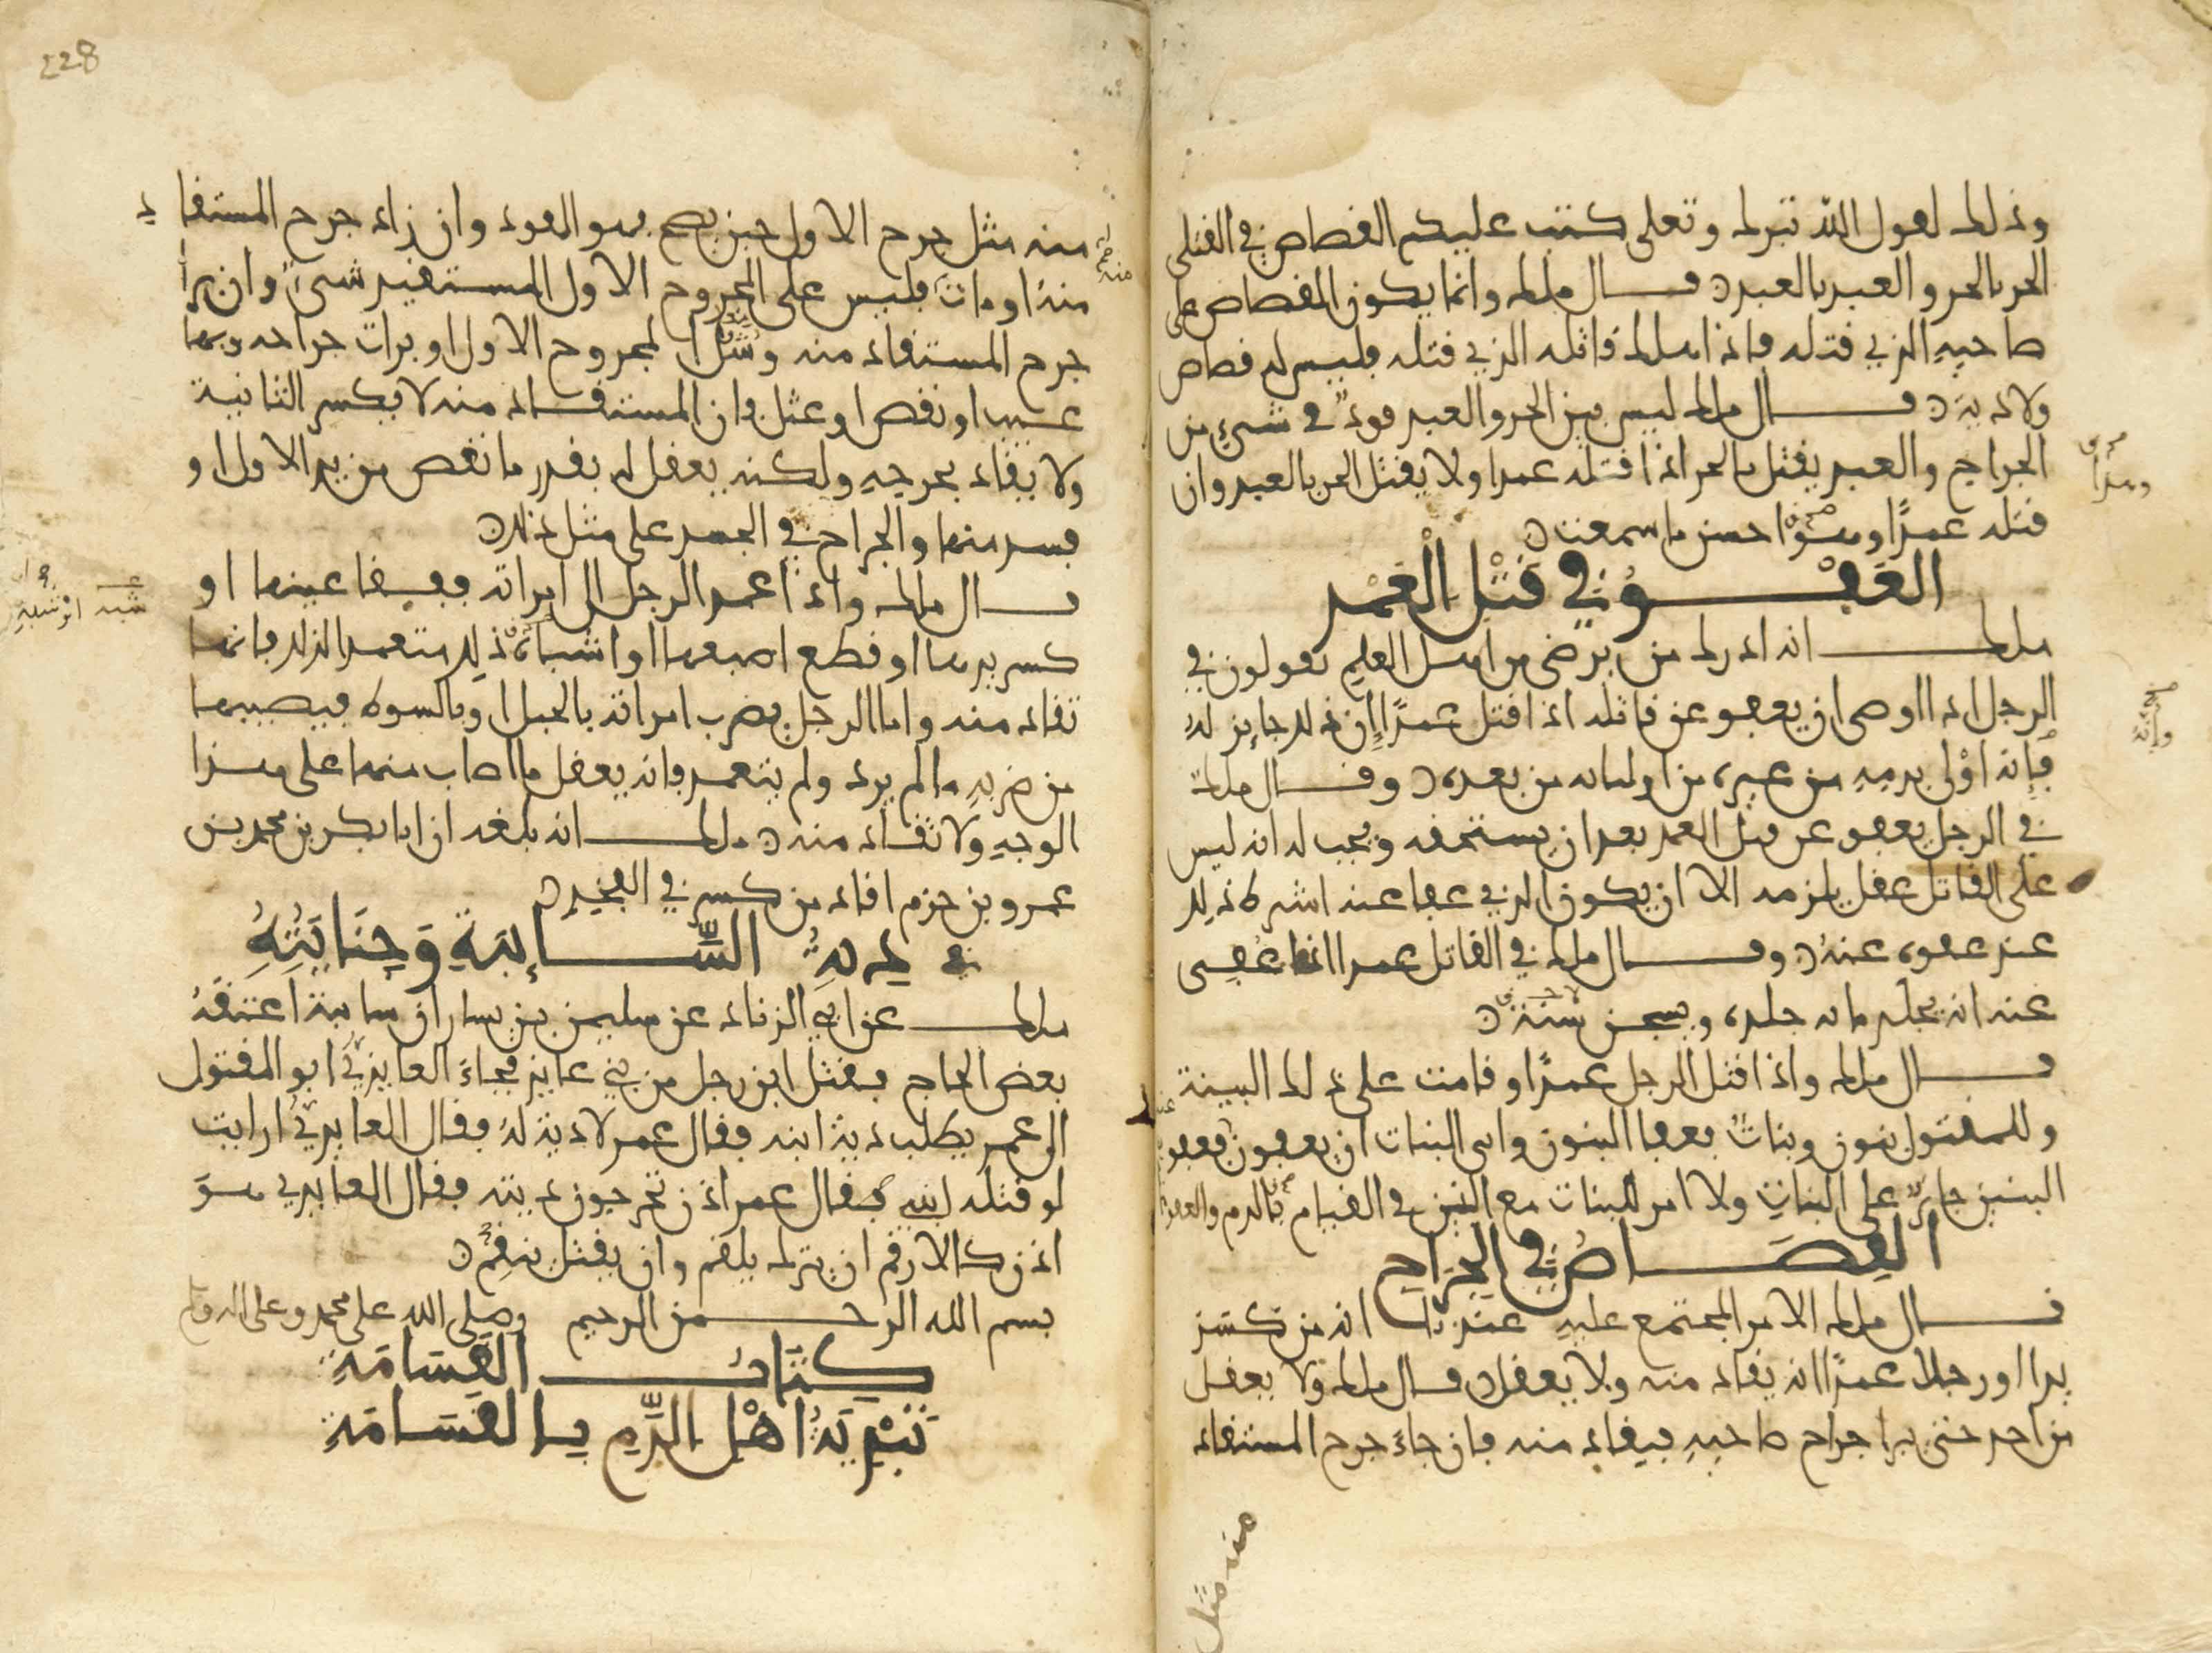 وذلك لقول الله تبرك وتعلى كتب عليكم القصاص في القتلى
الحر بالحر والعبد بالعبد قال ملك وانما يكون القصاص على
صاحبه الذي قتله فاذا هلك قاتله الذي قتله فليس له قصاص
ولا دية قال ملك ليس بين الحر والعبد قود في شيء من
الجراح والعبد يقتل بالحر اذا قتله عمدا ولا يقتل الحر بالعبد وان
قتله عمدًا وهو احسن ما سمعت
وهذا
العَفْوُ في قَتْلِ الْعَمْدِ
ملك انه ادرك من يرضى من اهل العلم يقولون في
الرجل اذا اوصى ان يعفو عن قاتله اذا قتل عمدًا إن ذلك جايز لهُ
وإنه
فإنه اوْلى بدمه من غيره من اوليائه من بعده وقال ملك
في الرجل يعفو عن قتل العمد بعد ان يستحقه ويجب له انه ليس
على القاتل عقل يلزمه الا ان يكون الذي عفا عنه اشترط ذلك
عند عفوه عنهُ وقال ملك في القاتل عمدا اذا عُفِي
عنه انه يجلد مائة جلدة ويسجن سنة
قال ملك واذا قتل الرجل عمدًا وقامت على ذلك البينة
وللمقتول بنون وبناتٌ فعفا البنون وابى البنات ان يعفون فعفو
البنين جايز على البنات ولا امر للبنات مع البنين في القيام بالدم والعفو عنه
القِصَاصُ في الجِرَاحِ
قال ملك الامر المجتمع عليه عندنا انه من كسَر
يدا او رجلا عمدًا انه يقاد منه ولا يعقل قال ملك ولا يعقل
من احد حتى يبرا جراح صاحبه فيقاد منه فان جاءَ جرح المستقاد
منه مثل
228
منه مثل جرح الاول حين يصح فهو القود وان زاد جرح المستقاد
منهُ او مات فليس على المجروح الاول المستقيد شيءٌ وان برأ
جرح المستقاد منه وشَلَّ المجروح الاول او برات جراحه وبها
عيب او نقص او عثل فان المستقاد منه لا يكسر الثانية
ولا يقاد بجرحه ولكنه يعقل له بقدر ما نقص من يد الاول او
فسد منها والجراح في الجسد على مثل ذلك
قال ملك واذا عمد الرجل الى امراته ففقا عينها او
كسر يدها او قطع اصبعها او اشباه ذلك متعمدا لذلك فانها
تقاد منه واما الرجل يضرب امراته بالحبل او بالسوط فيصيبها
من ضربه ما لم يرد ولم يتعمد فانه يعقل ما اصاب منها على هذا
الوجه ولا تقاد منه ملك انه بلغه ان ابا بكر بن محمد بن
عمرو بن حزم اقاد من كسر في الفخذ
في دِيةِ السَّايِبةِ وَجِنَايَتِهِ
ملك عن ابي الزناد عن سليمن بن يسار ان سايبة اعتقهُ
بعض الحاج فقتل ابن رجل من بني عايذ فجاءَ العايذي ابو المقتول
الى عمر يطلب دية ابنه فقال عمر لا دية لهُ فقال العايذي ارايت
لو قتله ابني فقال عمر اذن تخرجون ديته فقال العايذي هوَ
اذن كالارقم ان يترك يلقم وان يقتل ينقم
بسم الله الرحمن الرحيم وصلى الله على محمد وعلى اله وسلم
كِتَابُ القَسَامَةِ
تَبْدِيَةُ اهْلِ الدَّمِ بِالقَسَامَةِ